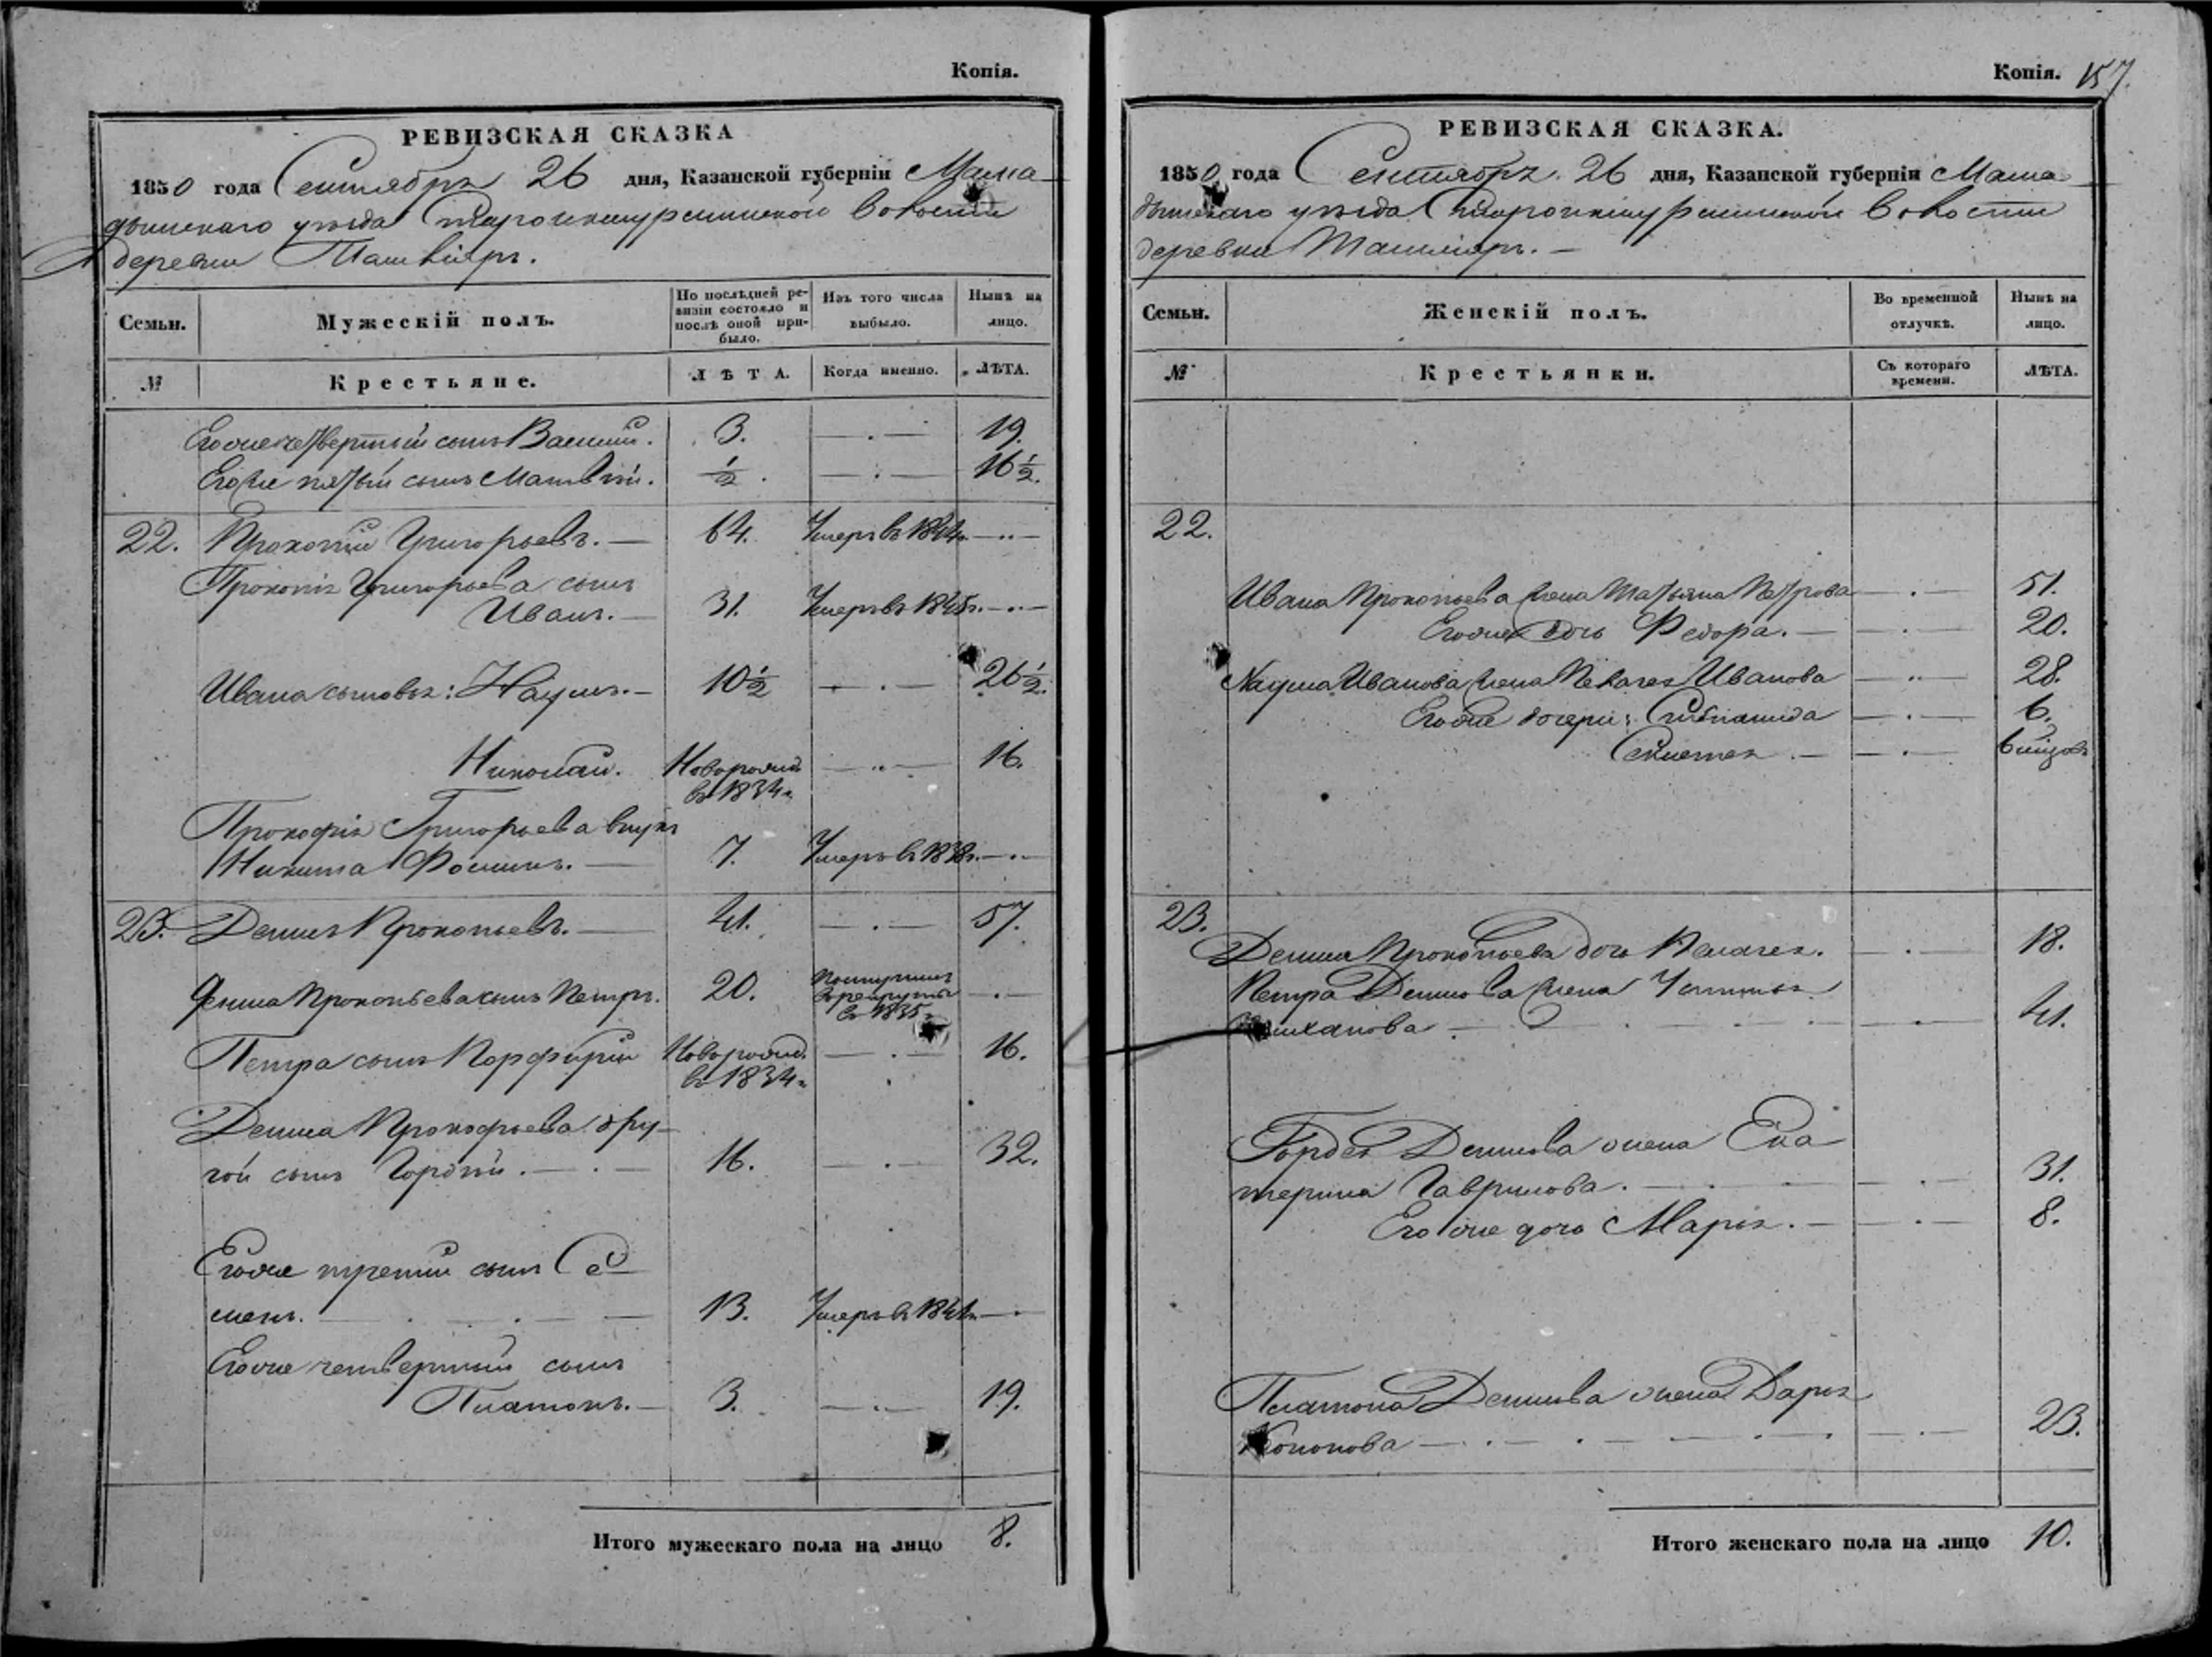 Копія.
РЕВИЗСКАЯ СКАЗКА
1850 года Сентября 26 дня, Казанской губерніи Мама-
дышскаго уѣзда волости
деревни
Семьи.
Мужескій полъ.
По послѣдней ре-
визіи состояло и
послѣ оной при-
было.
Изъ того числа
выбыло.
Нынѣ на
лицо.
№
Крестьяне.
ЛѢТА.
Когда именно.
ЛѢТА.
Егоже четвертый сынъ Василій. 3. 19.
Егоже пятый сынъ Матвѣй. ½. 16½.
22. Прокопій Григорьевъ. 64. Умеръ въ 1844г.
Прокопія Григорьева сынъ
Иванъ. 31. Умеръ въ
Ивана сыновья: Наумъ. 10½ 26½.
Николай. Новорожд. 16.
въ 1834г.
Прокофія Григорьева внукъ
Никита Фоминъ. 7. Умеръ въ 1838г.
23. Денисъ Прокопьевъ. 41. 57.
Дениса Прокопьева сынъ Петръ. 20. Поступилъ
въ рекруты
въ 1835г.
Петра сынъ Порфирій Новорожд. 16.
въ 1834г.
Дениса Прокофьева дру-
гой сынъ Гордѣй. 16. 32.
Егоже третій сынъ Се-
менъ. 13. Умеръ въ 1841г.
Егоже четвертый сынъ
Платонъ. 3. 19.
Итого мужескаго пола на лицо 8.
Копія. 157.
РЕВИЗСКАЯ СКАЗКА.
1850 года Сентября 26 дня, Казанской губерніи Мама-
дышскаго уѣзда волости
деревни
Семьи.
Женскій полъ.
Во временной
отлучкѣ.
Нынѣ на
лицо.
№
Крестьянки.
Съ котораго
времени.
ЛѢТА.
22.
Ивана Прокопьева жена Татьяна Петрова 51.
Егоже дочь Федора. 20.
Наума Иванова жена Пелагея Иванова 28.
Егоже дочери: Степанида 6.
23.
Дениса Прокопьева дочь Пелагея. 18.
Петра Денисова жена Устинья
41.
Гордея Денисова жена Ека-
терина Гаврилова. 31.
Егоже дочь Марія. 8.
Платона Денисова жена Дарья
Кононова 23.
Итого женскаго пола на лицо 10.